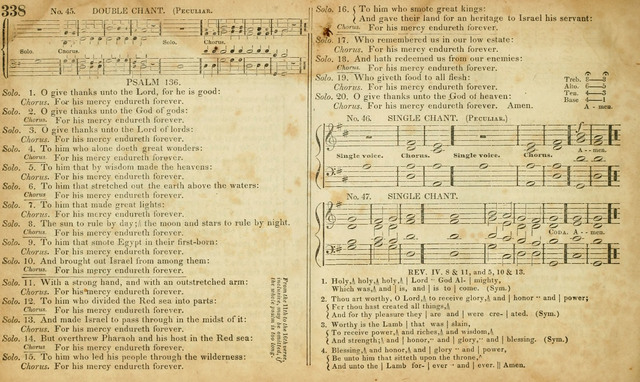 338
No. 45. DOUBLE CHANT. (Peculiar.
Solo. Chorus. Solo. Chorus.
PSALM 136.
Solo. 1. O give thanks unto the Lord, for he is good:
Chorus. For his mercy endureth forever.
Solo. 2. O give thanks unto the God of gods:
Chorus For his mercy endureth forever.
Solo. 3. O give thanks unto the Lord of lords:
Chorus. For his mercy endureth forever.
Solo. 4. To him who alone doeth great wonders:
Chorus. For his mercy endureth forever.
Solo. 5. To him that by wisdom made the heavens:
Chorus. For his mercy endureth forever.
Solo. 6. To him that stretched out the earth above the waters:
Chorus For his mercy endureth forever.
Solo. 7. To him that made great lights:
Chorus. For his mercy endureth forever.
Solo. 8. The sun to rule by day; the moon and stars to rule by night.
Chorus. For his mercy endureth forever.
Solo. 9. To him that smote Egypt in their first-born:
Chorus. For his mercy endureth forever.
Solo. 10. And brought out Israel from among them:
Chorus. For his mercy endureth forever.
Solo. 11. With a strong hand, and with an outstretched arm:
Chorus. For his mercy endureth forever.
Solo. 12. To him who divided the Red sea into parts:
Chorus. For his mercy endureth forever.
Solo. 13. And made Israel to pass through in the midst of it:
Chorus. For his mercy endureth forever.
Solo. 14. But overthrew Pharaoh and his host in the Red sea:
Chorus. For his mercy endureth forever.
Solo. 15. To him who led his people through the wilderness:
Chorus. For his mercy endureth forever.
From the 11th to the 16th verse,
inclusive, may be omitted, if
the Psalm is too long.
Solo. 16. To him who smote great kings:
And gave their land for an heritage to Israel his servant:
Chorus. For his mercy endureth forever.
Solo. 17. Who remembered us in our low estate:
Chorus. For his mercy endureth forever.
Solo. 18. And hath redeemed us from our enemies:
Chorus. For his mercy endureth forever.
Solo. 19. Who giveth food to all flesh:
Chorus. For his mercy endureth forever.
Solo. 20. O give thanks unto the God of heaven:
Chorus. For his mercy endureth forever. Amen.
Treb. 3—3
Alto. 5
Ten. 5
Base 4—1
A - men.
No. 46. SINGLE CHANT. (Peculiar.)
Single voice. Chorus. Single voice. Chorus. A - - men.
No. 47. SINGLE CHANT.
Coda. A - men.
REV. IV. 8 & 11, and 5, 10 & 13.
1. Holy, holy, holy, | Lord God Al- | mighty,
Which was, and | is, and | is to | come. (Sym.)
2. Thou art worthy, O Lord, to receive glory, and | honor and | power;
For thou hast created all things,
And for thy pleasure they | are and | were cre- | ated. (Sym.)
3. Worthy is the Lamb | that was | slain,
To receive power, and riches, and wisdom,
And strength; and | honor, and | glory, and | blessing. (Sym.)
4. Blessing, and honor, and | glory and | power,
Be unto him that sitteth upon the throne,
And unto the | Lamb for- | ever and | ever. || Amen.